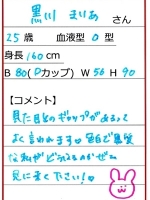 黒川 まりあ さん
25歳 血液型 O型
身長 160cm
B 80(Dカップ) W 56 H 90
【コメント】
見た目とのギャップがあるって
よく言われます♥ 色白で黒髪
な私がどうなるのかぜひ
見に来て下さい!